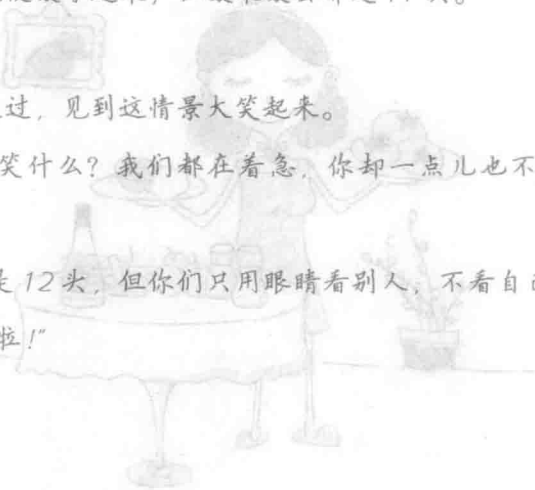 过，见到这情景大笑起来。
笑什么？我们都在着急，你却一点儿也不
是12头，但你们只用眼睛看别人，不看自
啦！”